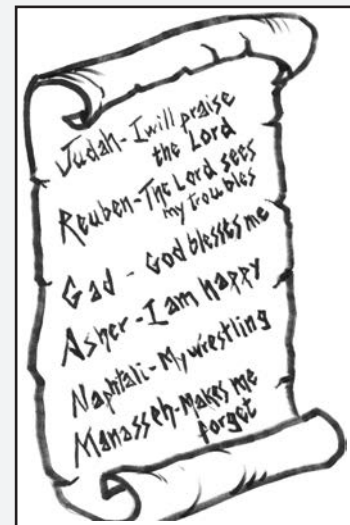 Judah - I will praise
the Lord
Reuben - The Lord sees
my troubles
Gad - God blesses me
Asher - I am happy
Naphtali - My wrestling
Manasseh - Makes me
forget